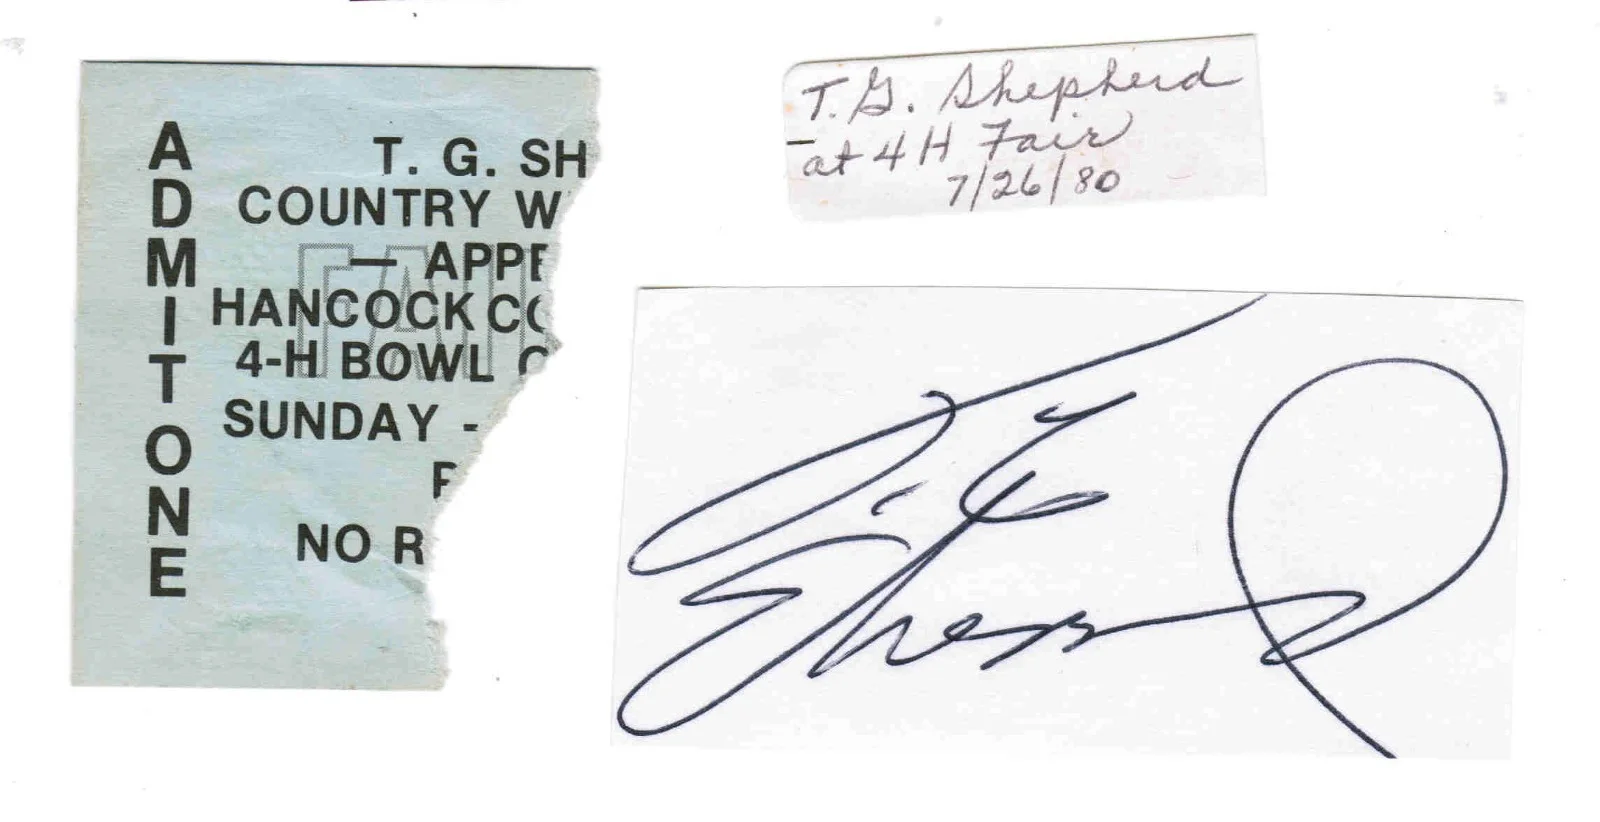 ADMIT ONE
T. G. SH
COUNTRY W
— APPE
HANCOCK CO
4-H BOWL
SUNDAY -
NO R
T. G. Shepherd
at 4 H Fair
7/26/80
T. G.
Sheppard